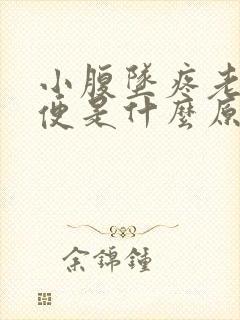 小腹墜疼老
便是什麼原
余錦鐘